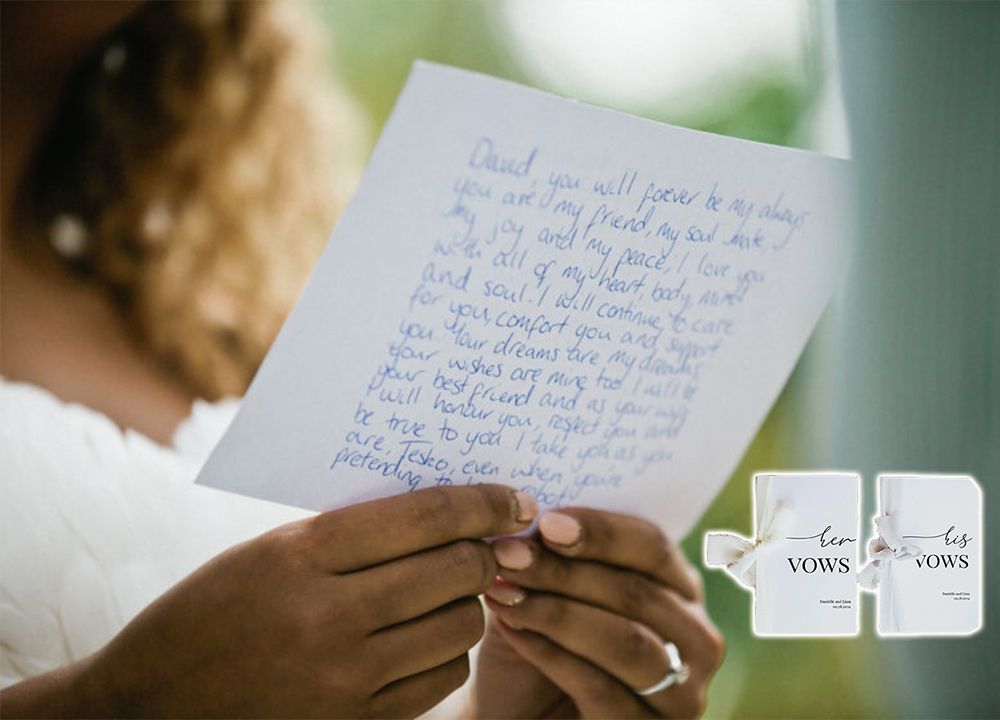 David, you will forever be my always.
you are my friend, my soul mate,
my joy and my peace, I love you
with all of my heart, body, mind
and soul. I will continue to care
for you, comfort you and support
you. Your dreams are my dreams
your wishes are mine too. I will be
your best friend and as your wife
I will honour you, respect you and
be true to you. I take you as you
are, even when you're
pretending to robot
her
VOWS
Danielle and Liam
his
VOWS
Danielle and Liam